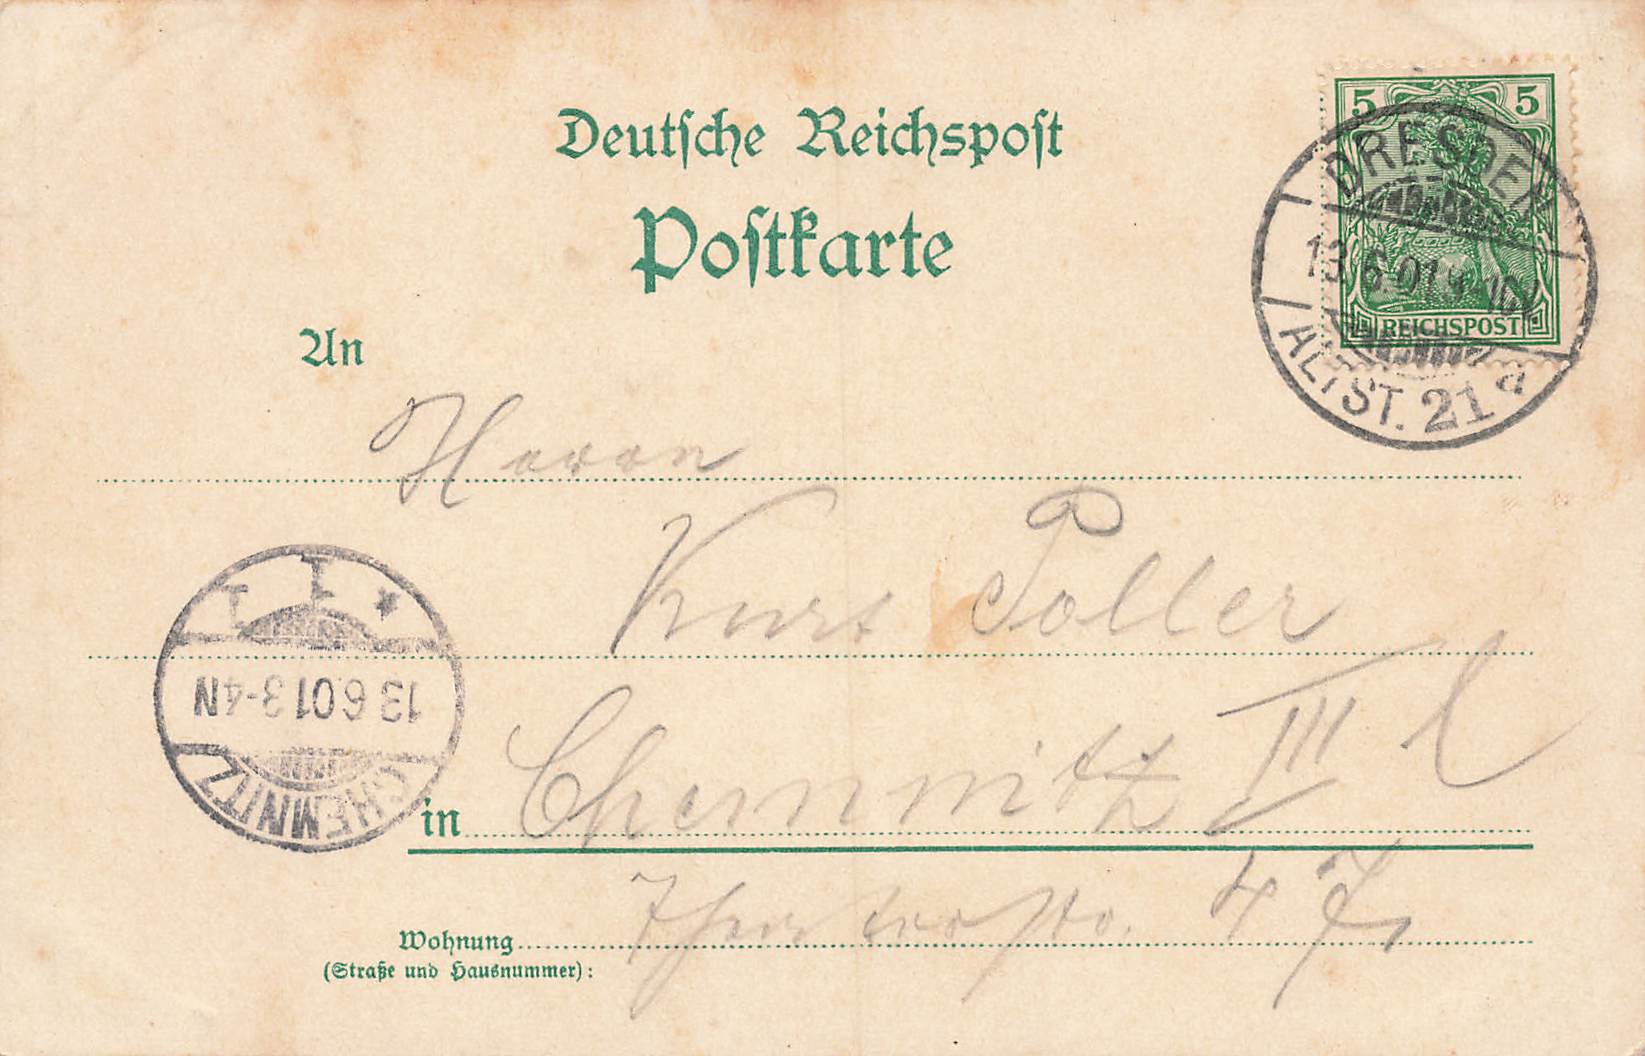 Deutsche Reichspost
Postkarte
5 5
REICHSPOST
DRESDEN
13.6.01
ALTST. 21 a
An
Herrn
Kurt Poller
in Chemnitz III
Wohnung
(Straße und Hausnummer):
Theaterstr. 47
CHEMNITZ
13 6.01 3-4N
1 1 *